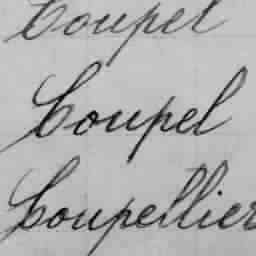 Coupel
Coupel
Coupellier